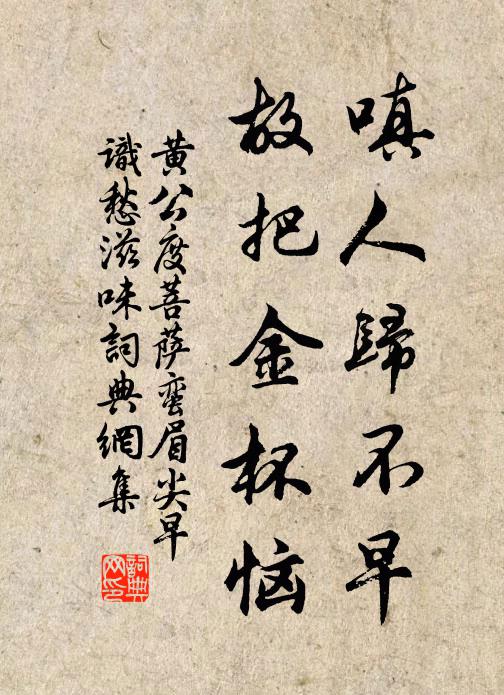 嗔人歸不早
故把金杯恼
黄公度菩萨蛮眉尖早
識愁滋味詞典網集
詞典网印